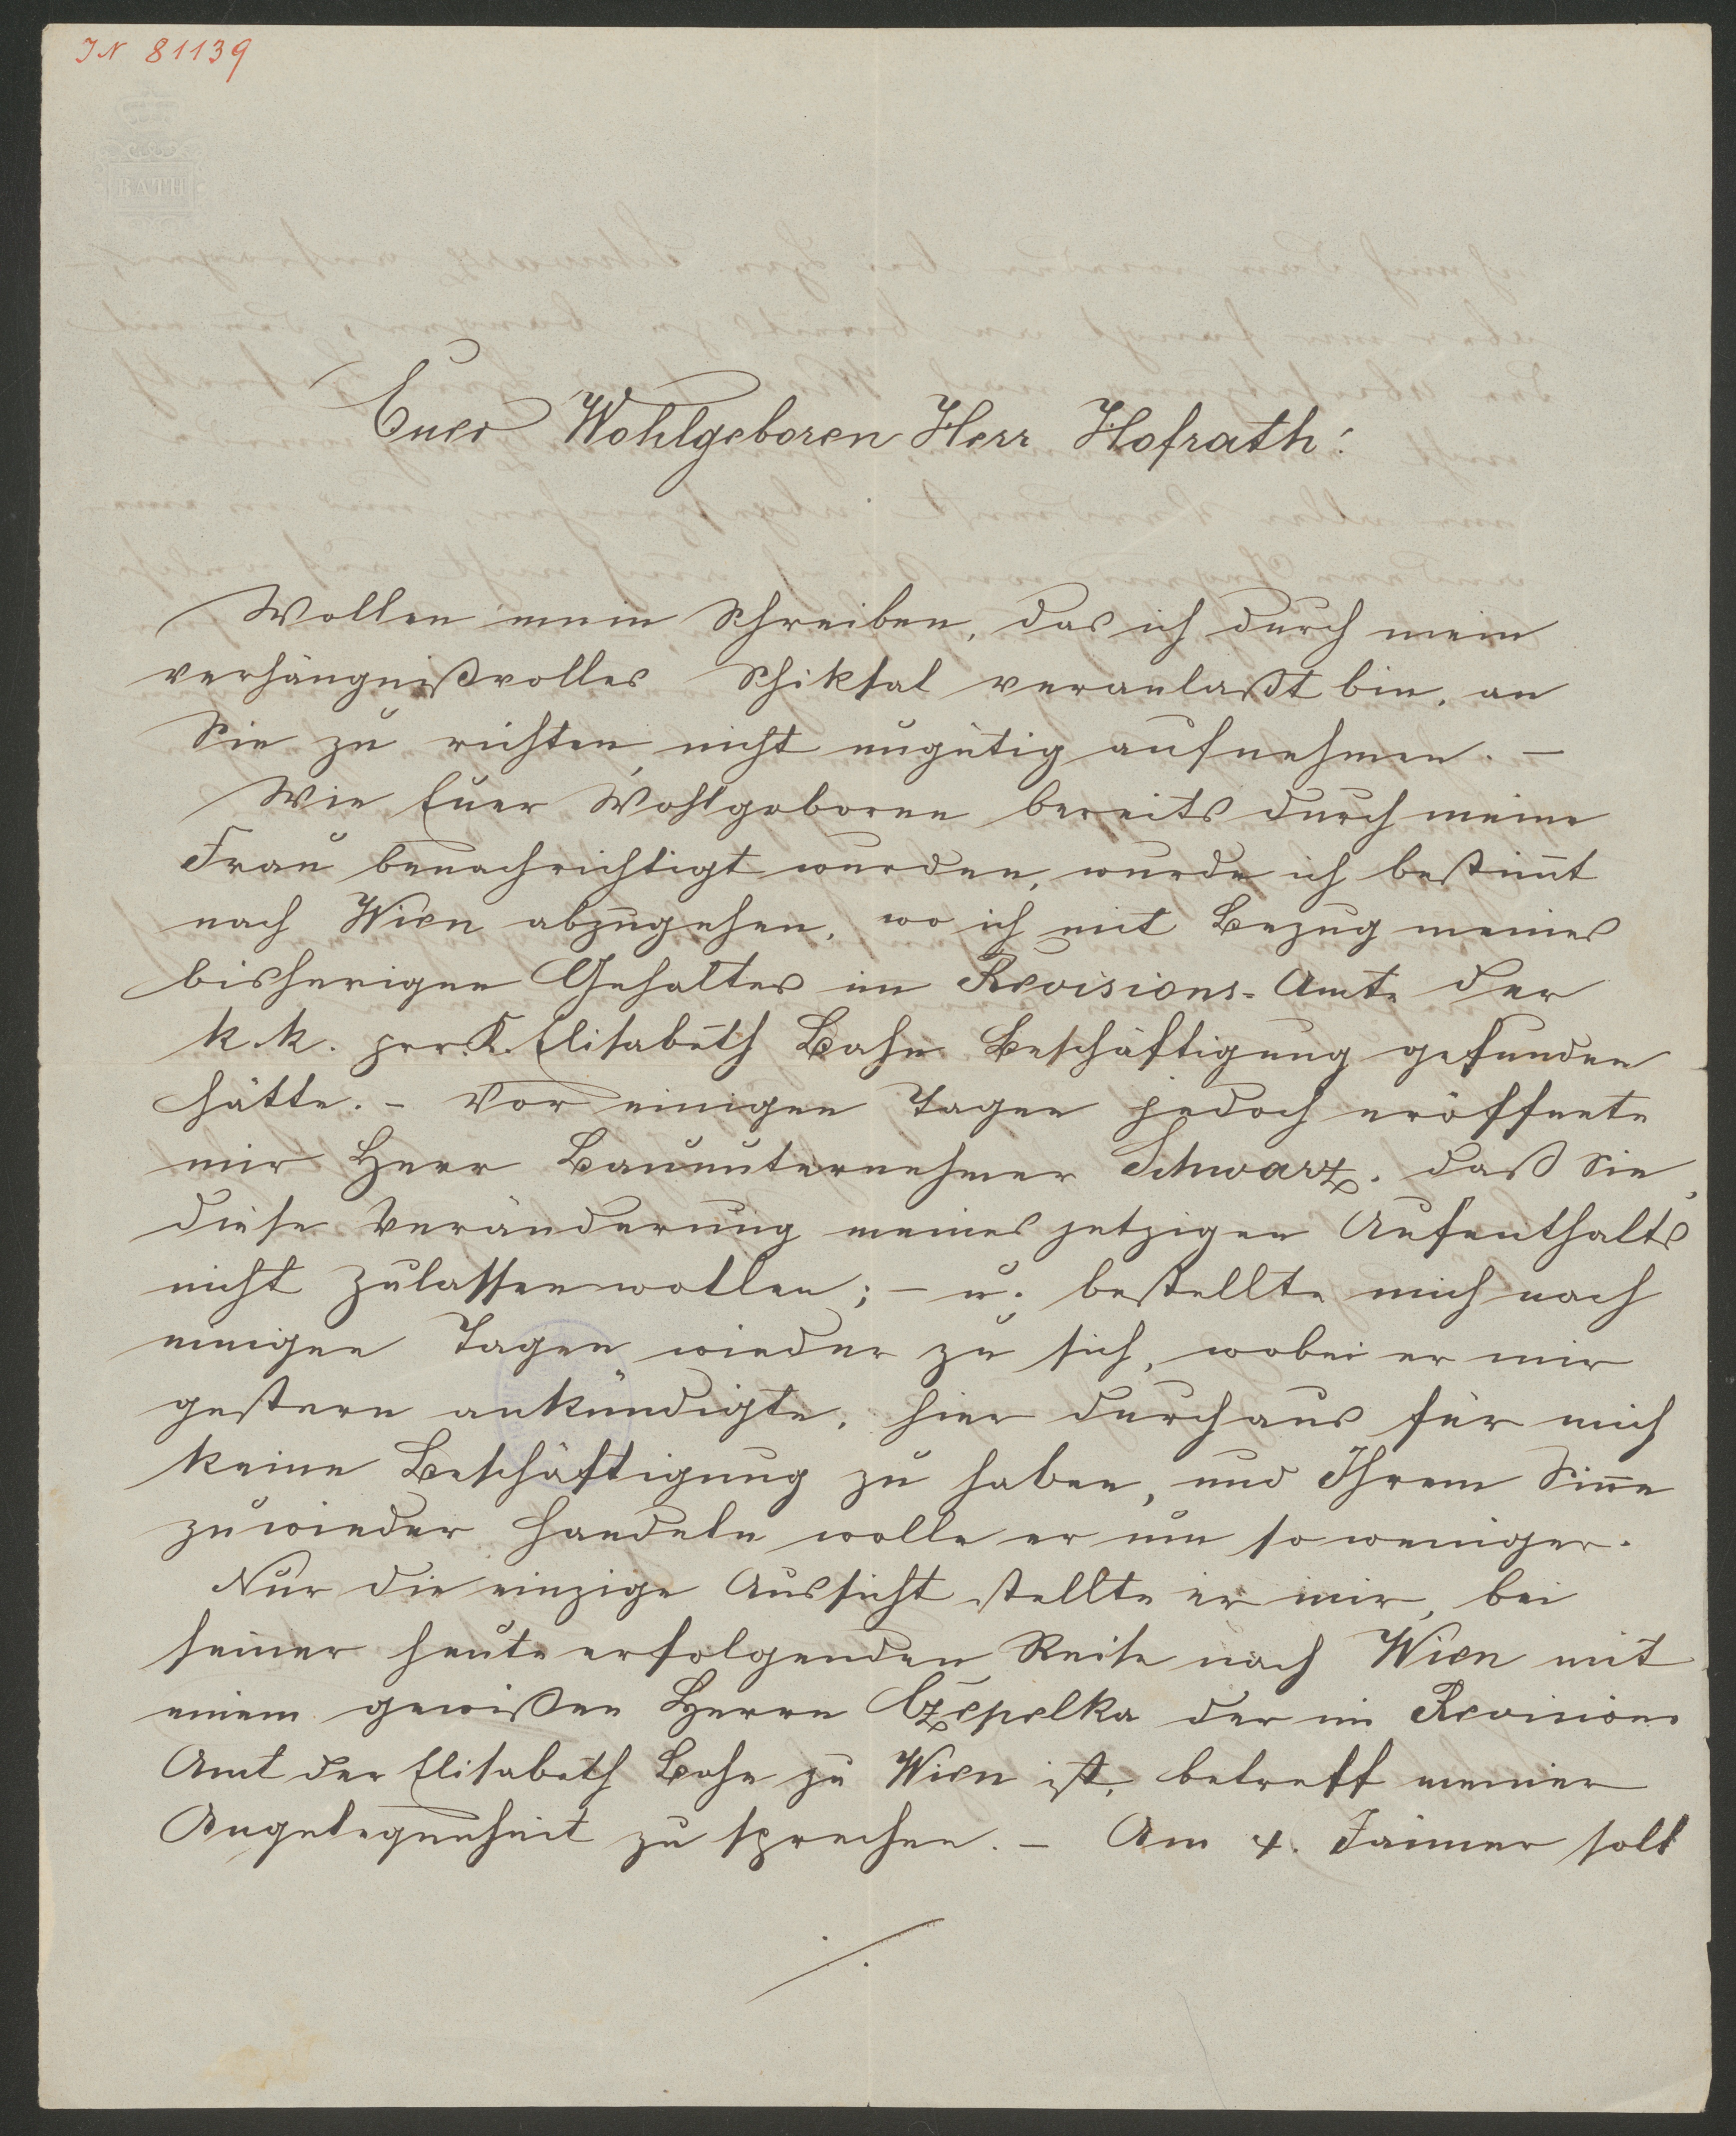 IN 81139
BATH
Euer Wohlgeboren Herr Hofrath!
Wollen mein Schreiben, das ich durch mein
verhängnißvolles Schiksal veranlaßt bin, an
Sie zu richten, nicht ungütig aufnehmen. –
Wie Euer Wohlgeboren bereits durch meine
Frau benachrichtigt wurden, wurde ich bestim̄t
nach Wien abzugehen, wo ich mit Bezug meines
bisherigen Gehaltes im Revisions-Amte der
k. k. prv. K. Elisabeth Bahn Beschäftigung gefunden
hätte. – Vor einigen Tagen jedoch eröffnete
mir Herr Bauunternehmer Schwarz, daß Sie
diese Veränderung meines jetzigen Aufenthalts
nicht zulassen wollen; – u. bestellte mich nach
einigen Tagen wieder zu sich, wobei er mir
gestern ankündigte, hier durchaus für mich
keine Beschäftigung zu haben, und Ihrem Sin̄e
zuwieder handeln wolle er um so weniger.
Nur die einzige Aussicht stellte er mir, bei
seiner heute erfolgenden Reise nach Wien mit
einem gewißen Herrn Czepelka der im Revisions
Amt der Elisabeth Bahn zu Wien ist, betreff meiner
Angelegenheit zu sprechen. – Am 4. Jänner soll
./.